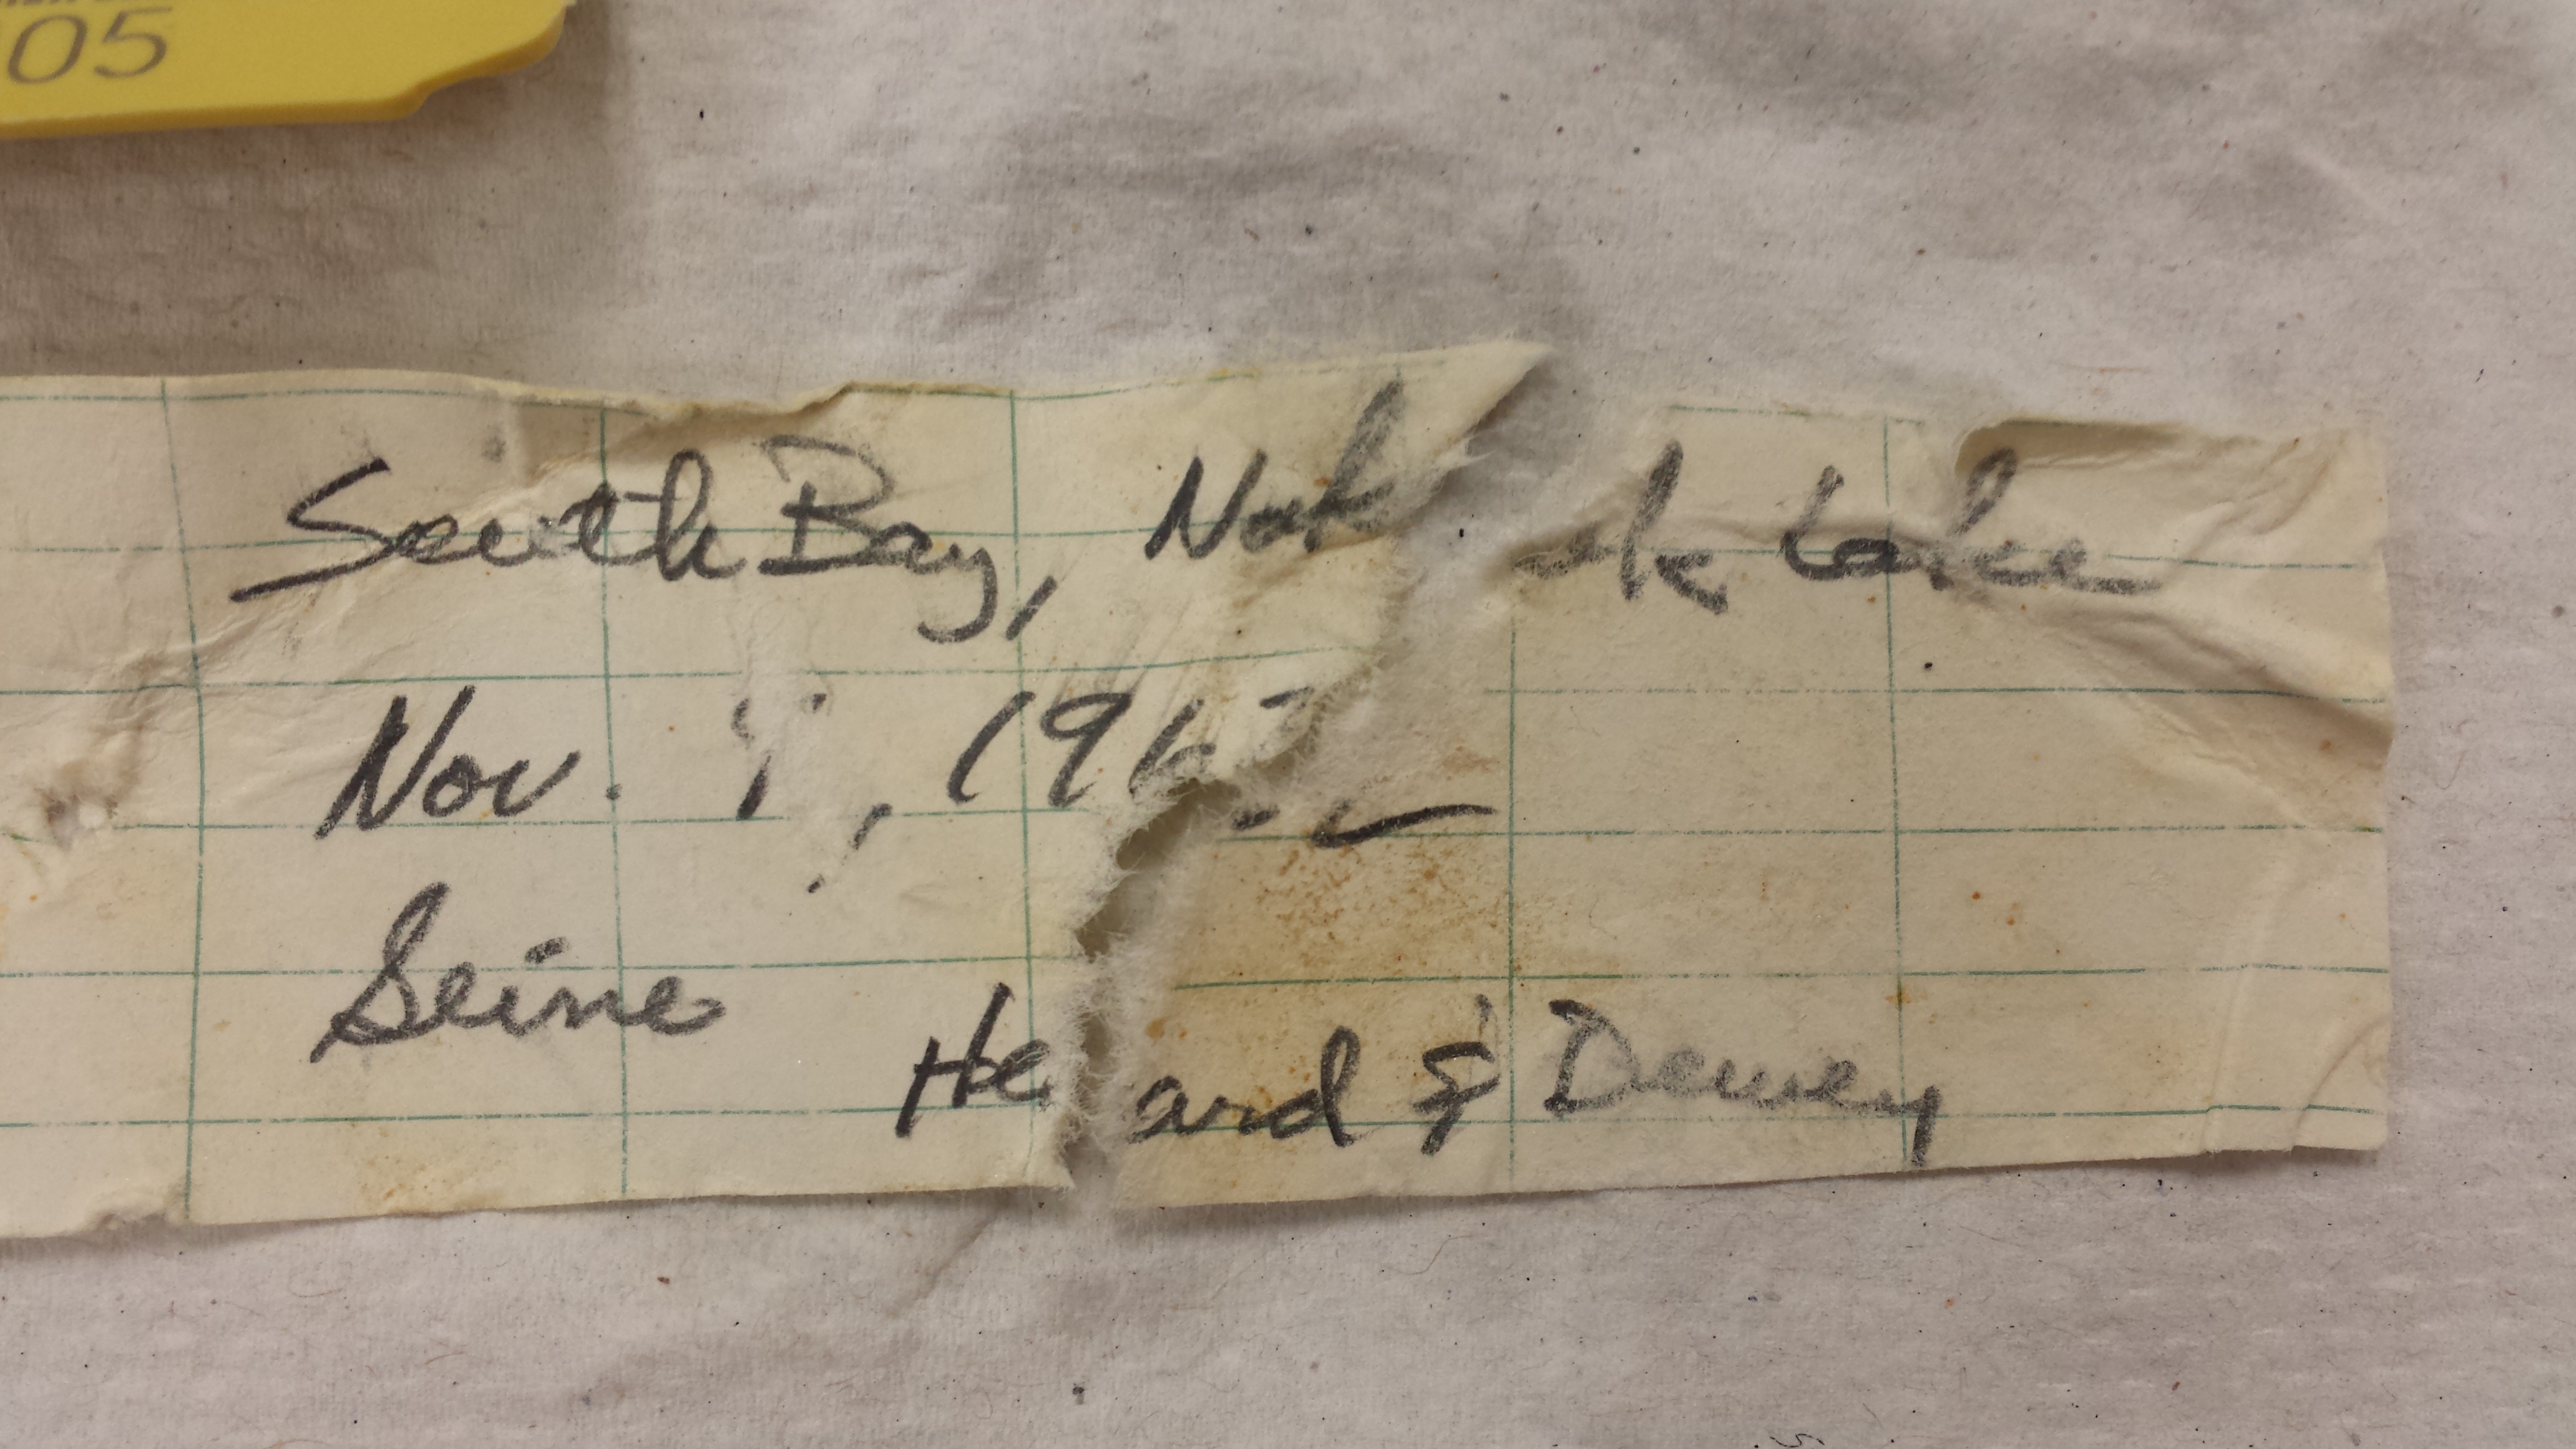 05
South Bay, Nak ek Lake
Nov. , 196
Seine
Heard & Dewey